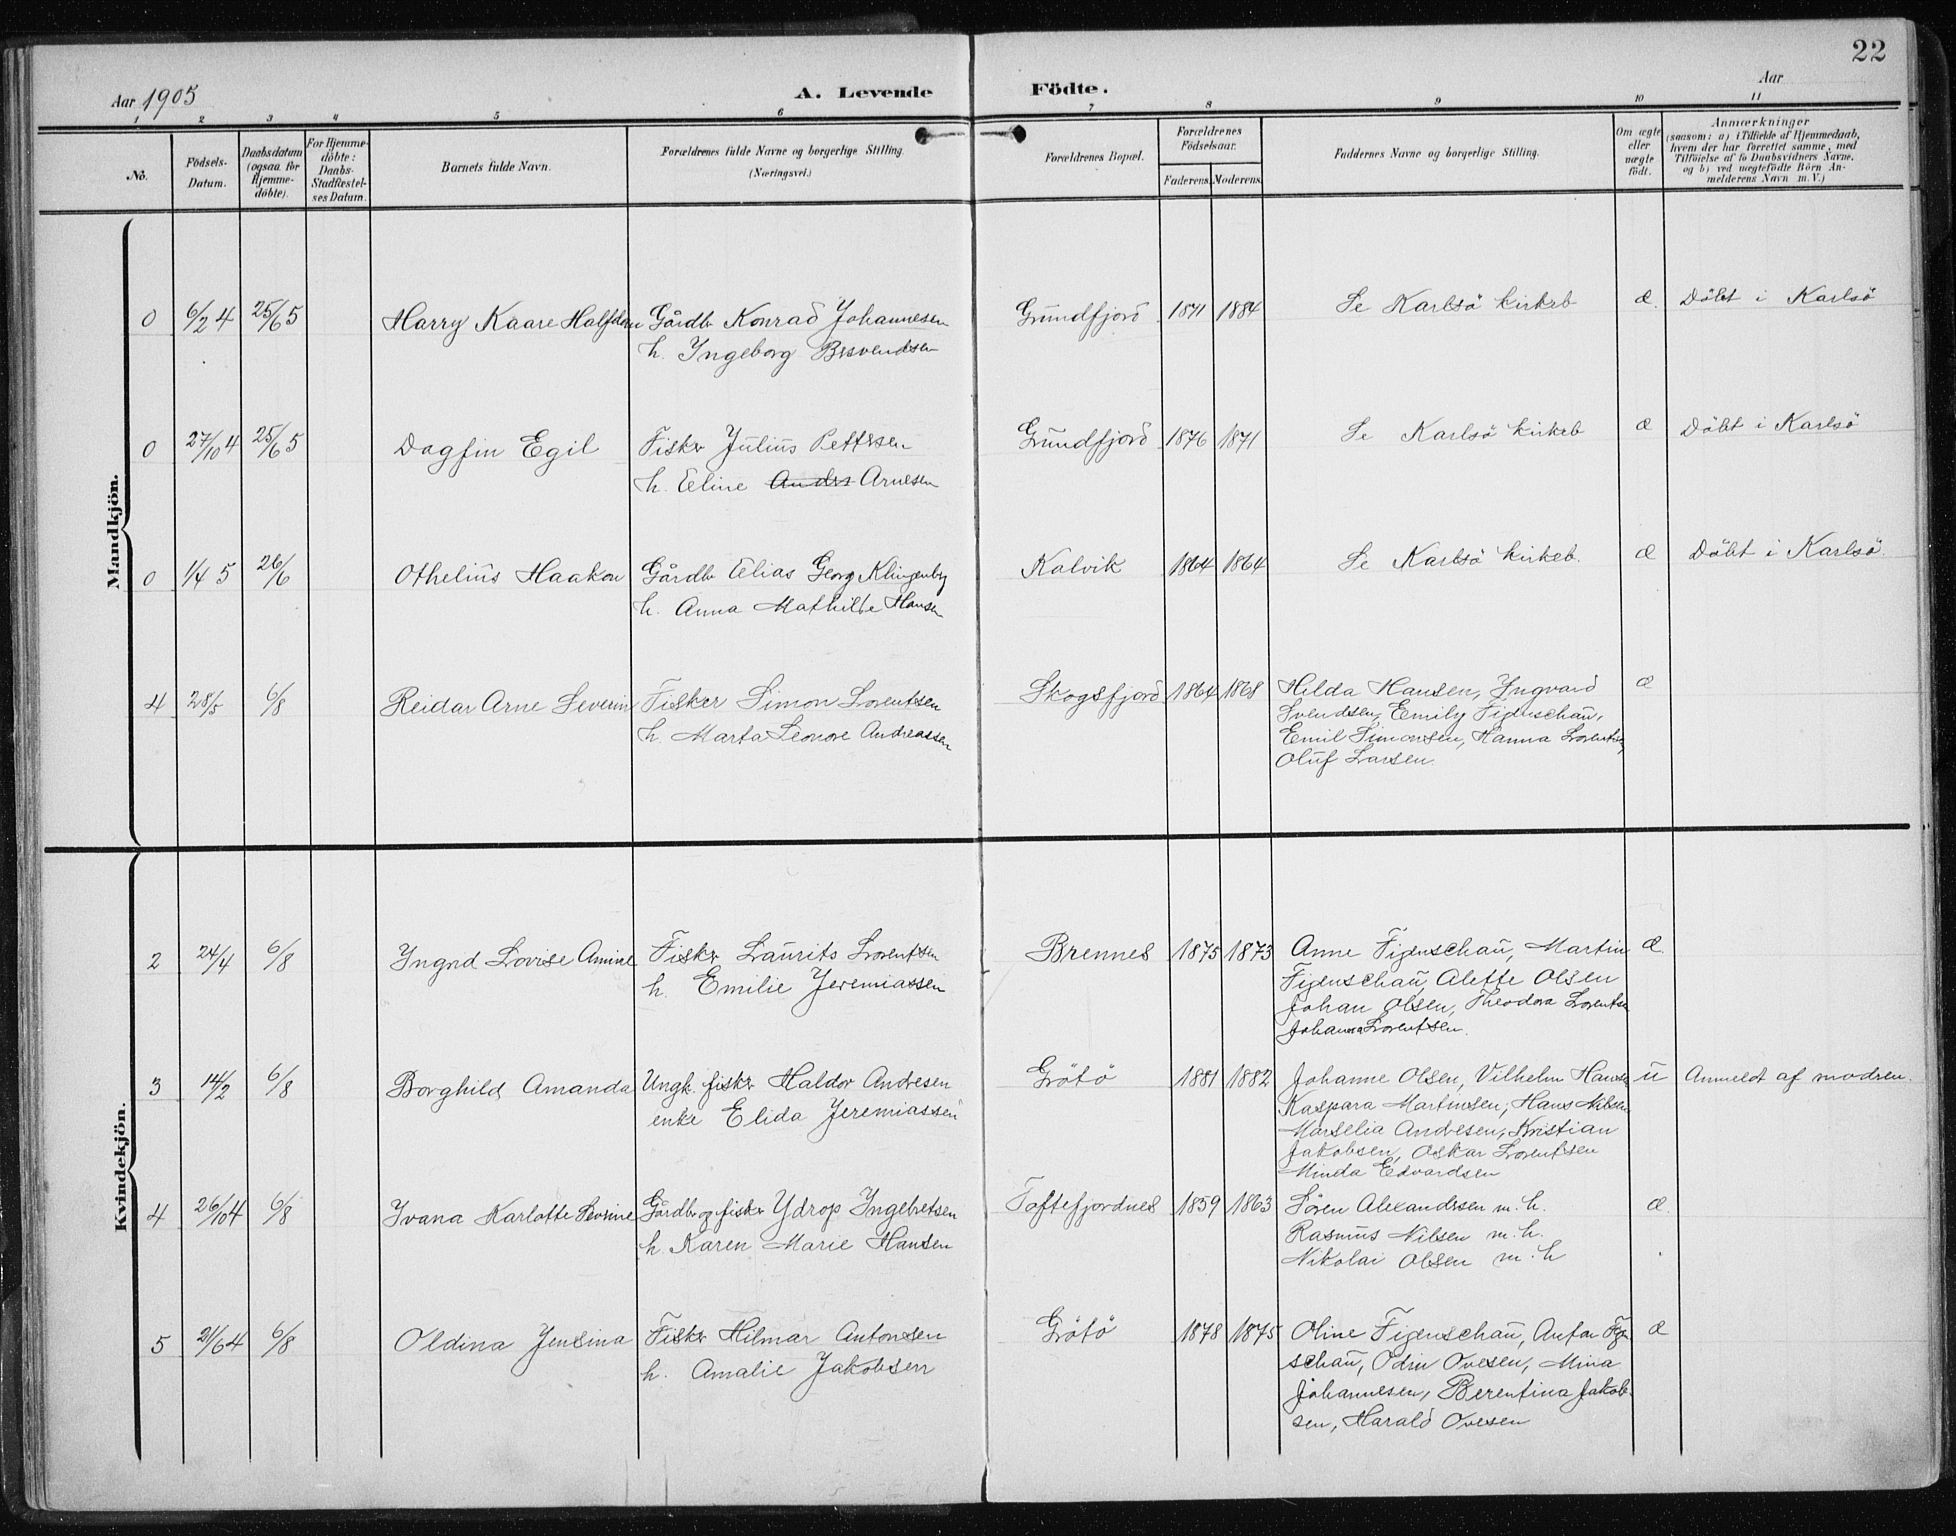 22
Aar 1905
A. Levende Födte.
Aar
1 2 3 4 5 6 7 8 9 10 11
No.
Födsels-Datum.
Daabsdatum (ogsaa for Hjemme-döbte).
For Hjemme-döbte: Daabs-Stadfæstel-ses Datum.
Barnets fulde Navn.
Forældrenes fulde Navne og borgerlige Stilling. (Næringsvei.)
Forældrenes Bopæl.
Forældrenes Födselsaar.
Faderens. Moderens.
Faddernes Navne og borgerlige Stilling.
Om ægte eller uægte födt.
Anmærkninger
(saasom: a) i Tilfælde af Hjemmedaab, hvem der har forrettet samme, med Tilföielse af to Daabsvidners Navne, og b) ved uægtefödte Börn An-melderens Navn m. V.)
Mandkjön.
0 6/2 4 25/6 5 Harry Kaare Halfdan Gårdbr Konrad Johannesen Grundfjord 1871 1884 Se Karlsö kirkeb æ. Döbt i Karlsö
h. Ingeborg
0 27/10 4 25/6 5 Dagfin Egil Fisker Julius Pettersen Grundfjord 1876 1871 Se Karlsö kirkeb æ Döbt i Karlsö
h. Eline Andrs Arnesen
0 1/4 5 26/6 Othelius Haakon Gårdbr Elias Georg Klingenberg Kalvik 1864 1864 Se Karlsö kirkeb. æ Döbt i Karlsö.
h. Anna Mathilde Hansen
4 28/5 6/8 Reidar Arne Severin Fisker Simon Lorentsen Skogsfjord 1864 1868 Hilda Hansen, Yngvard æ
h. Marta Leonore Andreassen Svendsen, Emily Figenschau,
Emil Simonsen, Hanna Lorentsen,
Oluf Larsen.
Kvindekjön.
2 24/4 6/8 Yngrid Lovise Amine Fisker Laurits Lorentsen Brennes 1875 1873 Anne Figenschau, Martin æ.
h. Emilie Jeremiassen Figenschau, Alette Olsen
Johan Olsen, Theodora Lorentsen
Johanna Lorentsen.
3 14/2 6/8 Borghild Amanda Ungk. fisker Haldor Andresen Grötö 1881 1882 Johanne Olsen, Vilhelm Hansen u Anmeldt af modren.
enke Elida Jeremiassen Kaspara Martinsen, Hans Nilsen
Marselia Andresen, Kristian
Jakobsen, Oskar Lorentsen
Minda Edvardsen
4 26/10 4 6/8 Ivana Karlotte Severine Gårdbr og fisker Ydrop Ingebretsen Toftefjordnes 1859 1863 Sören Alexandersen m. h. æ.
h. Karen Marie Hansen Rasmus Nilsen m. h.
Nikolai Olsen m. h
5 21/6 4 6/8 Oldina Jensina Fisker Hilmar Antonsen Grötö 1878 1875 Oline Figenschau, Anton Figen- æ
h. Amalie Jakobsen schau, Odin Ovesen, Mina
Johannesen, Berentina Jakob-
sen, Harald Ovesen